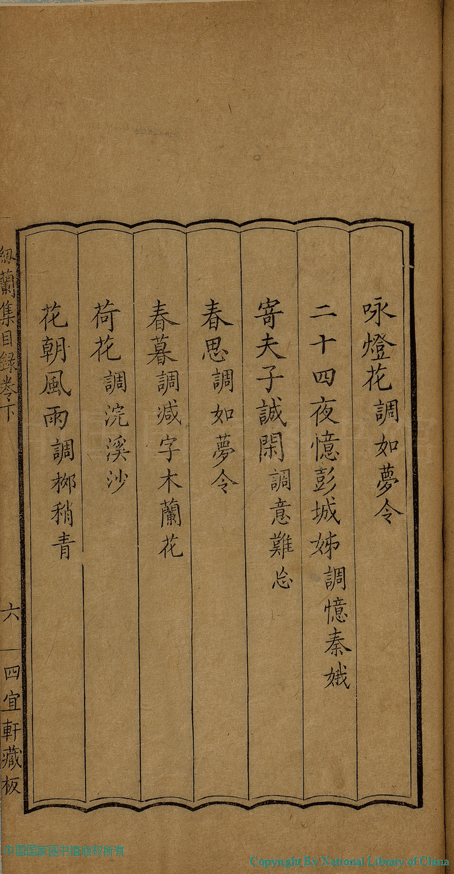 咏燈花調如夢令
二十四夜憶彭城姊調憶秦娥
寄夫子誠閑調意難忘
春思調如夢令
春暮調減字木蘭花
荷花調浣溪沙
花朝風雨調栁稍青
紉蘭集目録卷下
六
四宜軒藏板
Copyright By National Library of China